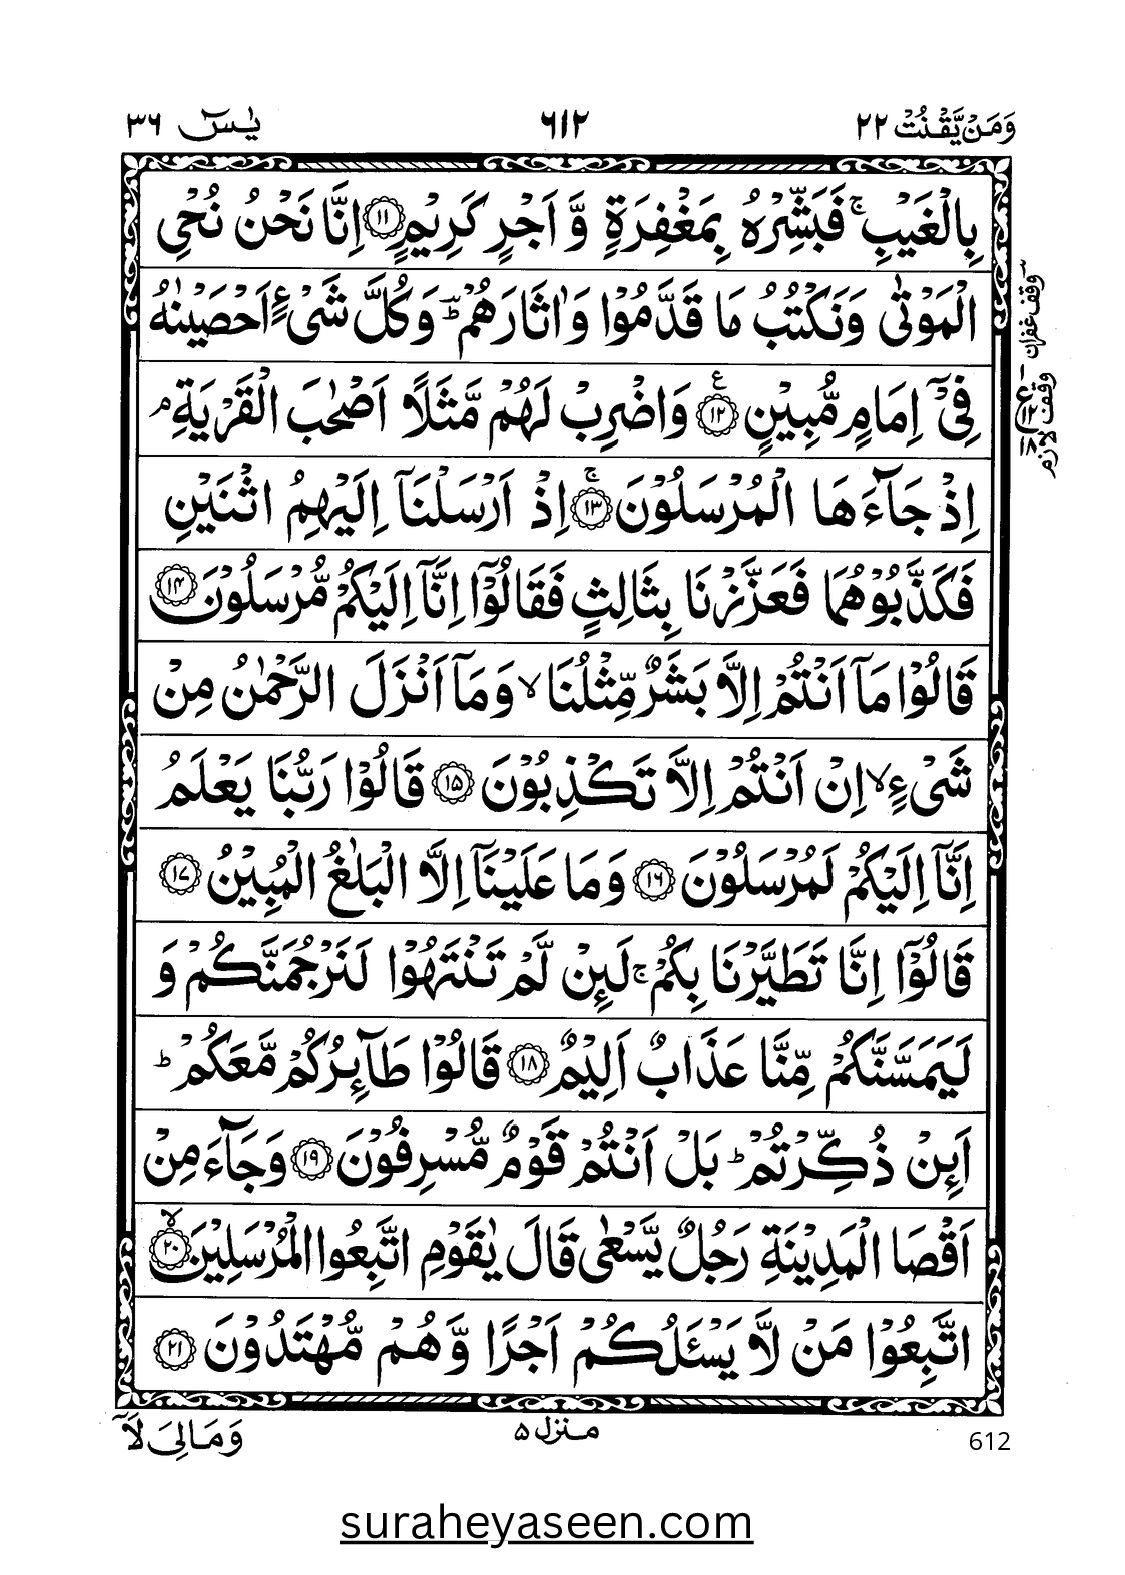 وَمَنۡ يَّقۡنُتۡ ٢٢
٦١٢
يٰسٓ ٣٦
بِالۡغَيۡبِ‌ۚ فَبَشِّرۡهُ بِمَغۡفِرَةٍ وَّاَجۡرٍ كَرِيۡمٍ ﴿۱۱﴾ اِنَّا نَحۡنُ نُحۡىِ
الۡمَوۡتٰى وَنَكۡتُبُ مَا قَدَّمُوۡا وَاٰثَارَهُمۡؕؔ وَكُلَّ شَىۡءٍ اَحۡصَيۡنٰهُ
فِىۡۤ اِمَامٍ مُّبِيۡنٍ ﴿۱۲﴾ ع وَاضۡرِبۡ لَهُمۡ مَّثَلًا اَصۡحٰبَ الۡقَرۡيَةِ‌ۘ
اِذۡ جَآءَهَا الۡمُرۡسَلُوۡنَ‌ۚ ﴿۱۳﴾ اِذۡ اَرۡسَلۡنَاۤ اِلَيۡهِمُ اثۡنَيۡنِ
فَكَذَّبُوۡهُمَا فَعَزَّزۡنَا بِثَالِثٍ فَقَالُوۡۤا اِنَّاۤ اِلَيۡكُمۡ مُّرۡسَلُوۡنَ ﴿۱۴﴾
قَالُوۡا مَاۤ اَنۡتُمۡ اِلَّا بَشَرٌ مِّثۡلُنَا ۙ وَمَاۤ اَنۡزَلَ الرَّحۡمٰنُ مِنۡ
شَىۡءٍ ۙ اِنۡ اَنۡتُمۡ اِلَّا تَكۡذِبُوۡنَ ﴿۱۵﴾ قَالُوۡا رَبُّنَا يَعۡلَمُ
اِنَّاۤ اِلَيۡكُمۡ لَمُرۡسَلُوۡنَ ﴿۱۶﴾ وَمَا عَلَيۡنَاۤ اِلَّا الۡبَلٰغُ الۡمُبِيۡنُ ﴿۱۷﴾
قَالُوۡۤا اِنَّا تَطَيَّرۡنَا بِكُمۡ‌ۚ لَئِنۡ لَّمۡ تَنۡتَهُوۡا لَنَرۡجُمَنَّكُمۡ وَ
لَيَمَسَّنَّكُمۡ مِّنَّا عَذَابٌ اَلِيۡمٌ ﴿۱۸﴾ قَالُوۡا طَآئِرُكُمۡ مَّعَكُمۡؕ
اَئِنۡ ذُكِّرۡتُمۡؕ بَلۡ اَنۡتُمۡ قَوۡمٌ مُّسۡرِفُوۡنَ ﴿۱۹﴾ وَجَآءَ مِنۡ
اَقۡصَا الۡمَدِيۡنَةِ رَجُلٌ يَّسۡعٰى قَالَ يٰقَوۡمِ اتَّبِعُوا الۡمُرۡسَلِيۡنَ ۙ ﴿۲۰﴾
اتَّبِعُوۡا مَنۡ لَّا يَسۡـَٔلُكُمۡ اَجۡرًا وَّهُمۡ مُّهۡتَدُوۡنَ ﴿۲۱﴾
وقف غفران
ع
١٢
١٨
وقف لازم
وَمَالِىَ لَاۤ
منزل ۵
612
suraheyaseen.com